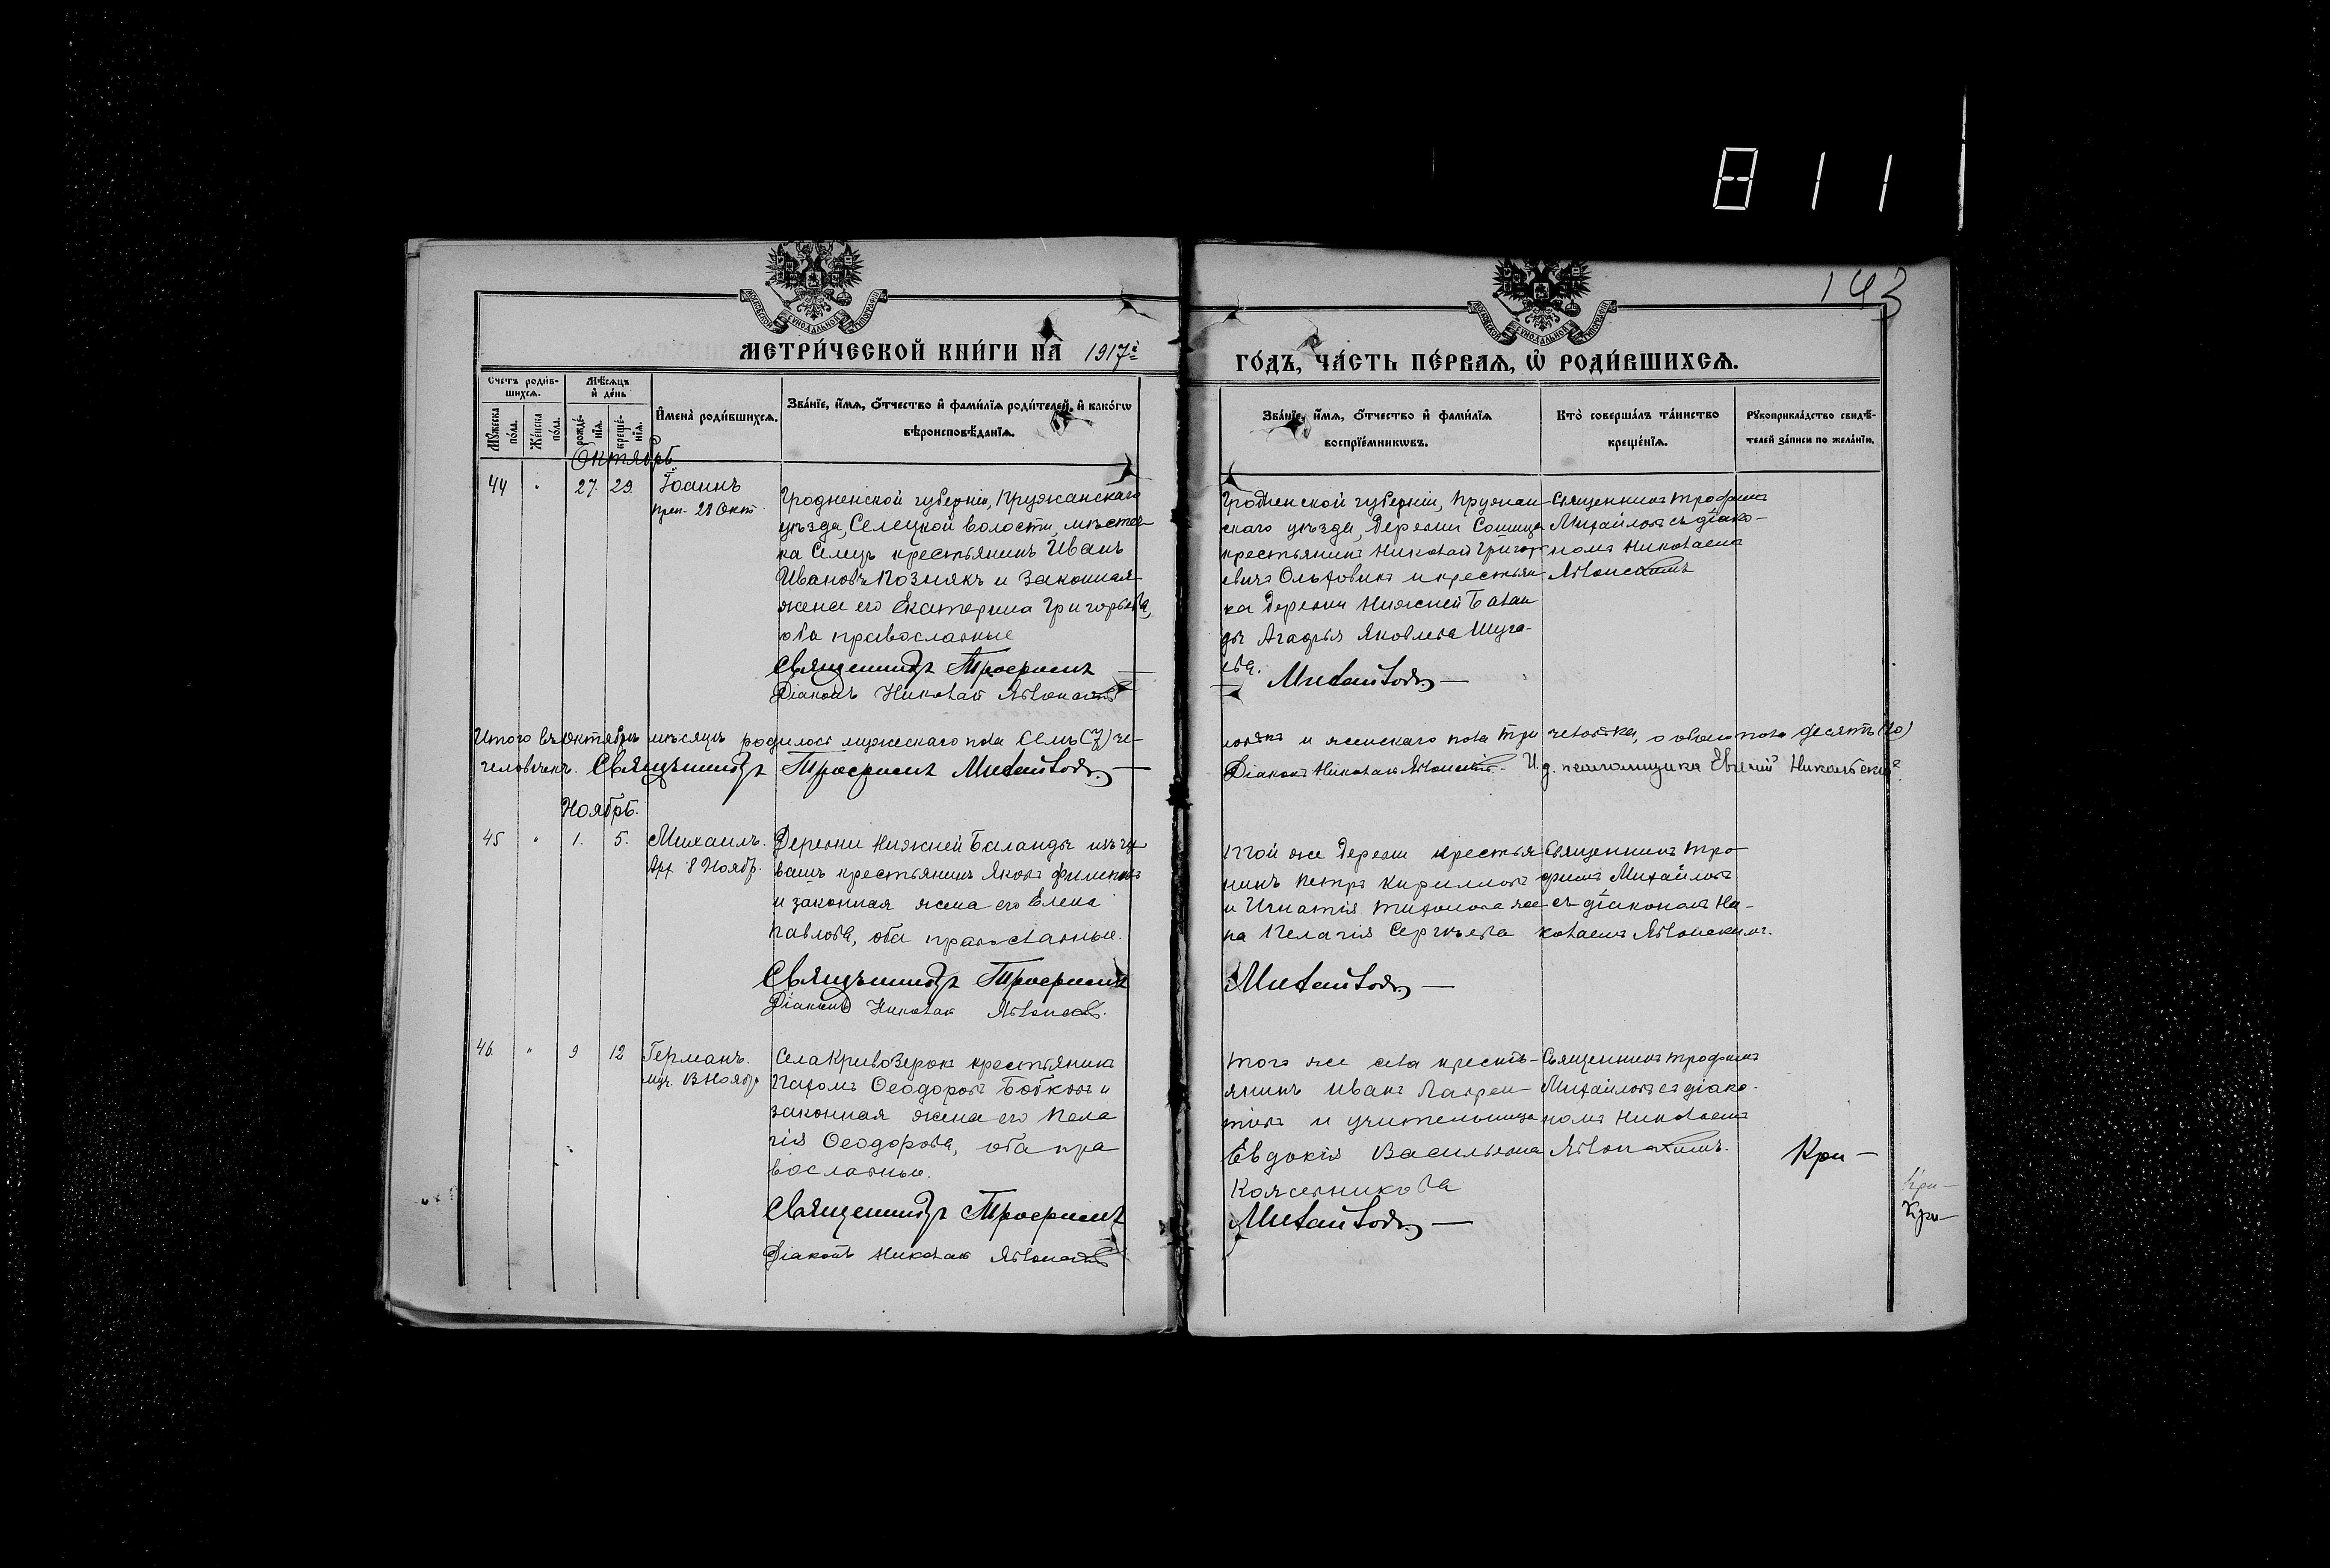 811
143
МОСКОВСКОЙ СѴНОДАЛЬНОЙ ТИПОГРАФІИ
МОСКОВСКОЙ СѴНОДАЛЬНОЙ ТИПОГРАФІИ
МЕТРИ́ЧЕСКОЙ КНИ́ГИ НА 1917й
ГО́ДЪ, ЧА́СТЬ ПЕ́РВАѦ, Ѡ҆ РОДИ́ВШИХСѦ.
Счетъ роди́вшихсѧ.
Мꙋ́жеска по́ла.
Же́нска по́ла.
Мѣ́сѧцъ и҆ де́нь
рожде́нїѧ.
креще́нїѧ.
И҆мена̀ роди́вшихсѧ.
Зва́нїе, и҆́мѧ, ѻ҆́тчество и҆ фами́лїѧ роди́телей, и҆ како́гѡ
вѣроисповѣ́данїѧ.
Зва́нїе, и҆́мѧ, ѻ҆́тчество и҆ фами́лїѧ
воспрїе́мникѡвъ.
Кто̀ соверша́лъ та́инство
креще́нїѧ.
Рꙋкоприкла́дство свидѣ́-
телей за́писи по жела́нїю.
Октябрь
44 " 27. 29. Іоаннъ
преп. 28 Окт.
Гродненской губерніи, Пружанскаго
уѣзда, Селецкой волости, мѣстеч-
ка Селецъ крестьянинъ Иванъ
Ивановъ Познякъ и законная
жена его Екатерина Григорьева,
оба православные
Священникъ Трофимъ
Діаконъ Николай Яблонскій
Гродненской губерніи, Пружан-
скаго уѣзда, деревни Сошица
крестьянинъ Николай Григорь-
евичъ Ольховикъ и крестьян
ка деревни Нижней Балан
ды Агафья Яковлева Шуга-
ева.
Михайловъ
Священникъ Трофимъ
Михайловъ съ діако-
номъ Николаемъ
Яблонскимъ
Итого въ октябрѣ мѣсяцѣ родилось мужескаго пола семь (7) че-
ловѣкъ и женскаго пола три человѣка, о обоего пола десять (10)
человѣкъ. Священникъ Трофимъ Михайловъ
Діаконъ Николай Яблонскій. И. д. псаломщика Евгеній Никольскій
Ноябрь.
45 " 1. 5. Михаилъ.
Арх. 8 Ноябр.
Деревни Нижней Баланды изъ чу
вашъ крестьянинъ Яковъ Филиповъ
и законная жена его Елена
Павлова, оба православные.
Священникъ Трофимъ
Діаконъ Николай Яблонскій.
Той же деревни крестья
нинъ Петръ Кирилловъ
и Игнатія Тихонова же
на Пелагія Сергѣева
Михайловъ
Священникъ Тро-
фимъ Михайловъ
съ діакономъ Ни-
колаемъ Яблонскимъ.
46 " 9 12 Германъ.
муч. 13 Ноябр
Села КривоЗерокъ крестьянинъ
Пахомъ Ѳеодоровъ Бобковъ и
законная жена его Пела
гія Ѳеодорова, оба пра
вославные.
Священникъ Трофимъ
Діаконъ Николай Яблонскій
Того же села кресть-
янинъ Иванъ Лаврен-
тьевъ и учительница
Евдокія Васильевна
Кожевникова
Михайловъ
Священникъ Трофимъ
Михайловъ съ діако-
номъ Николаемъ
Яблонскимъ.
Кри-
Кри-
Кри-